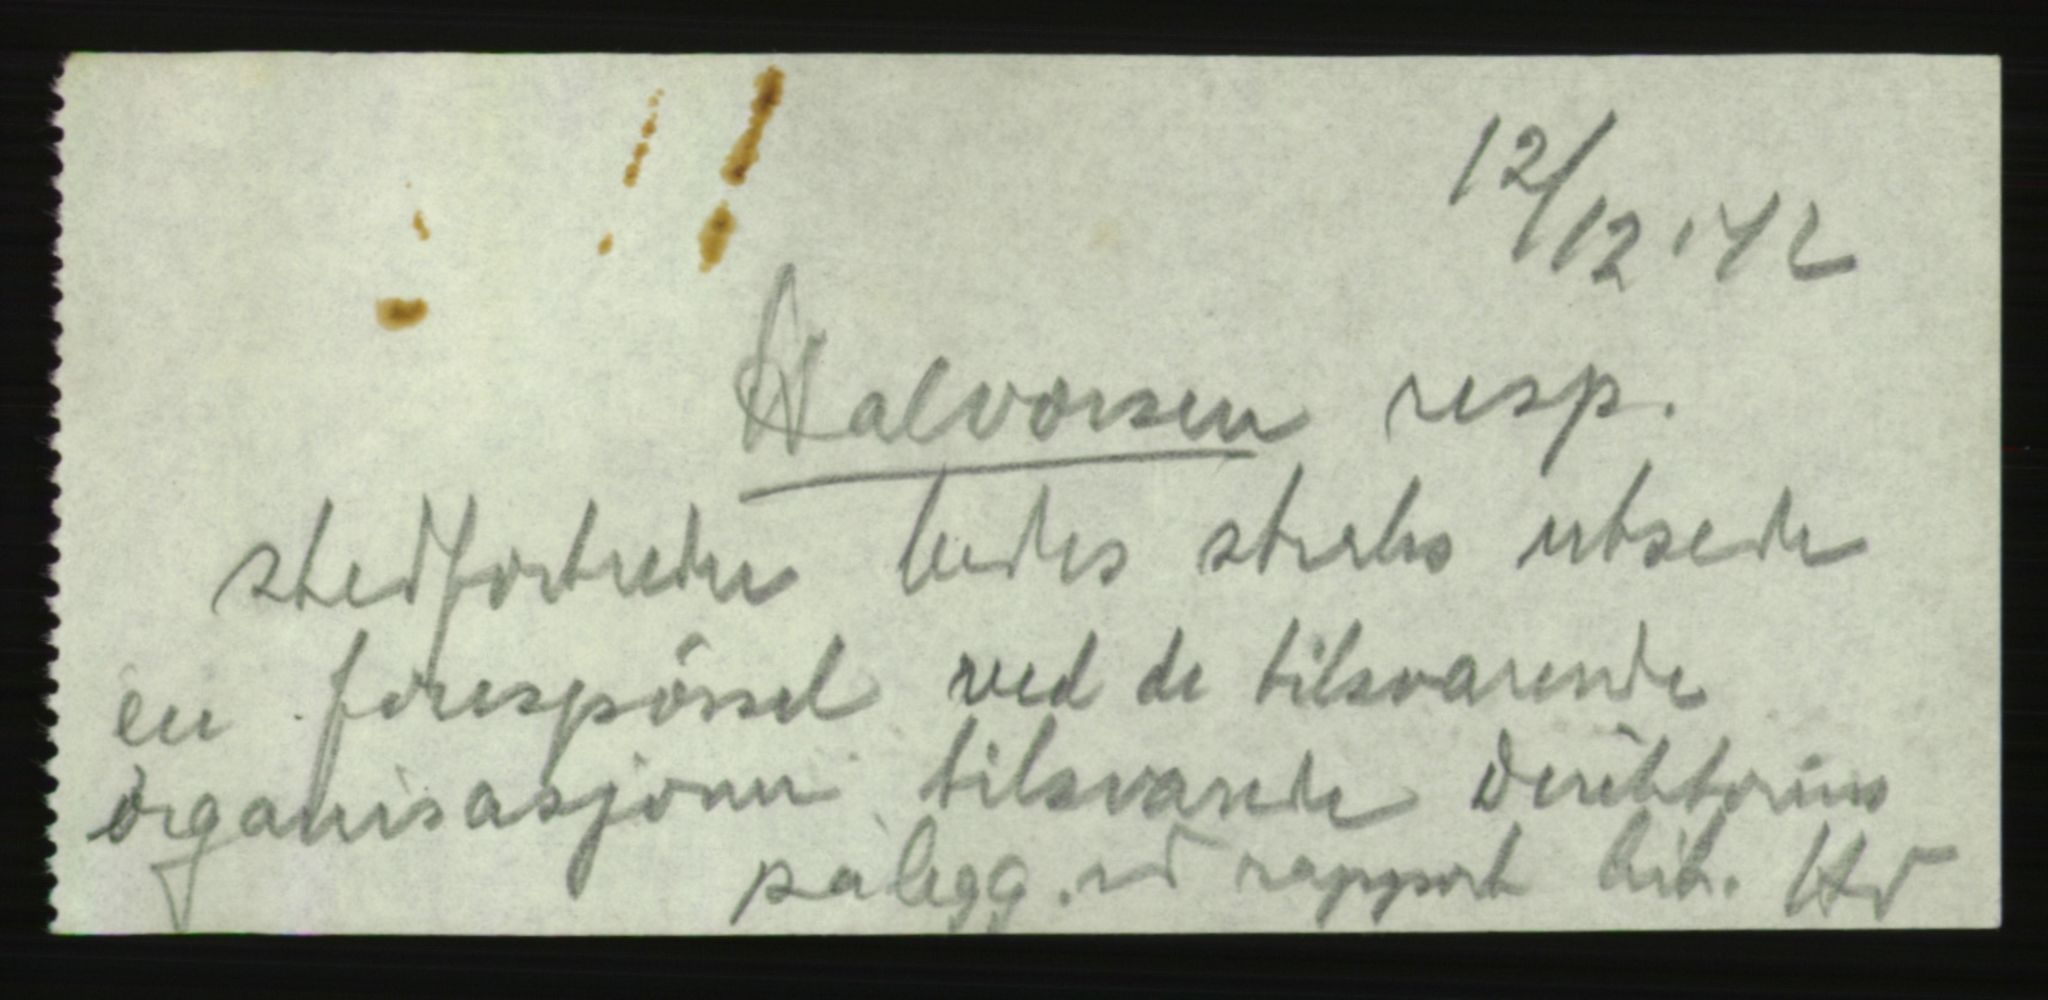 12/12.'42
Halvorsen resp.
stedfortreder bedes straks utsede
en forespörsel ved de tilsvarende
organisasjoner tilsvarende Direktorius
pålegg. rapport hit.